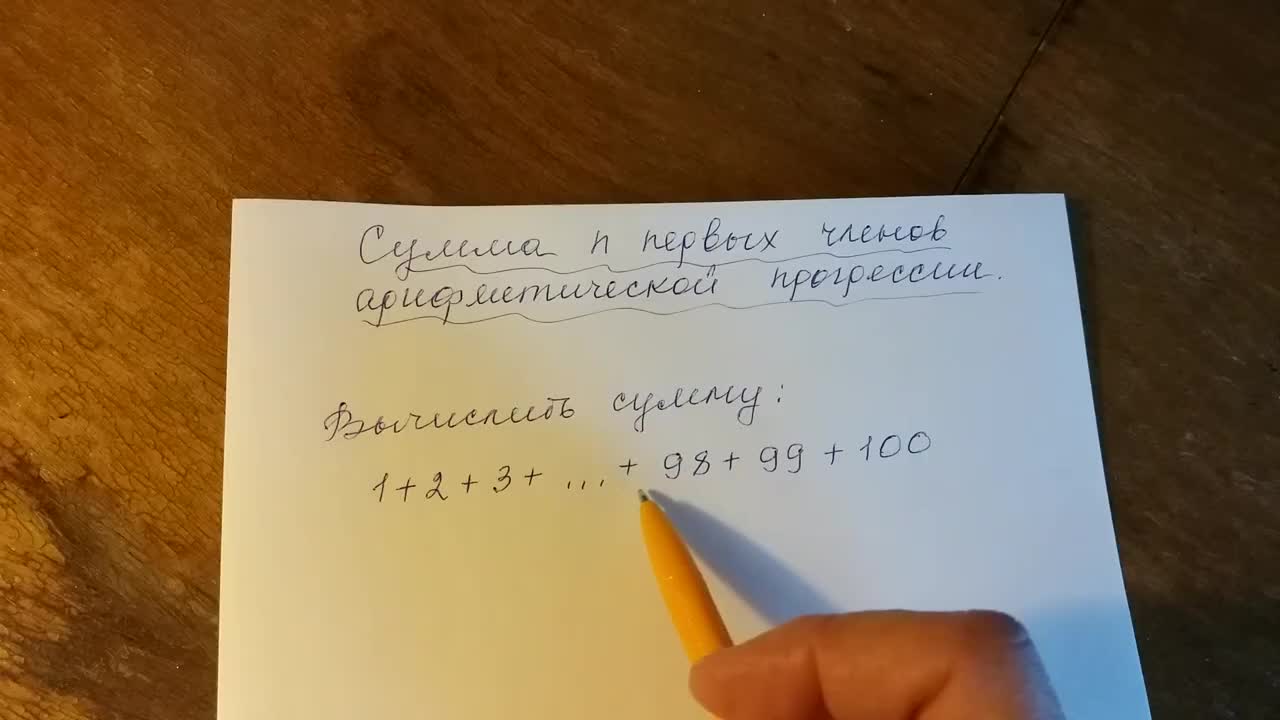 Сумма n первых членов
арифметической прогрессии.
Вычислить сумму:
1+2+3+ ... + 98+99+100